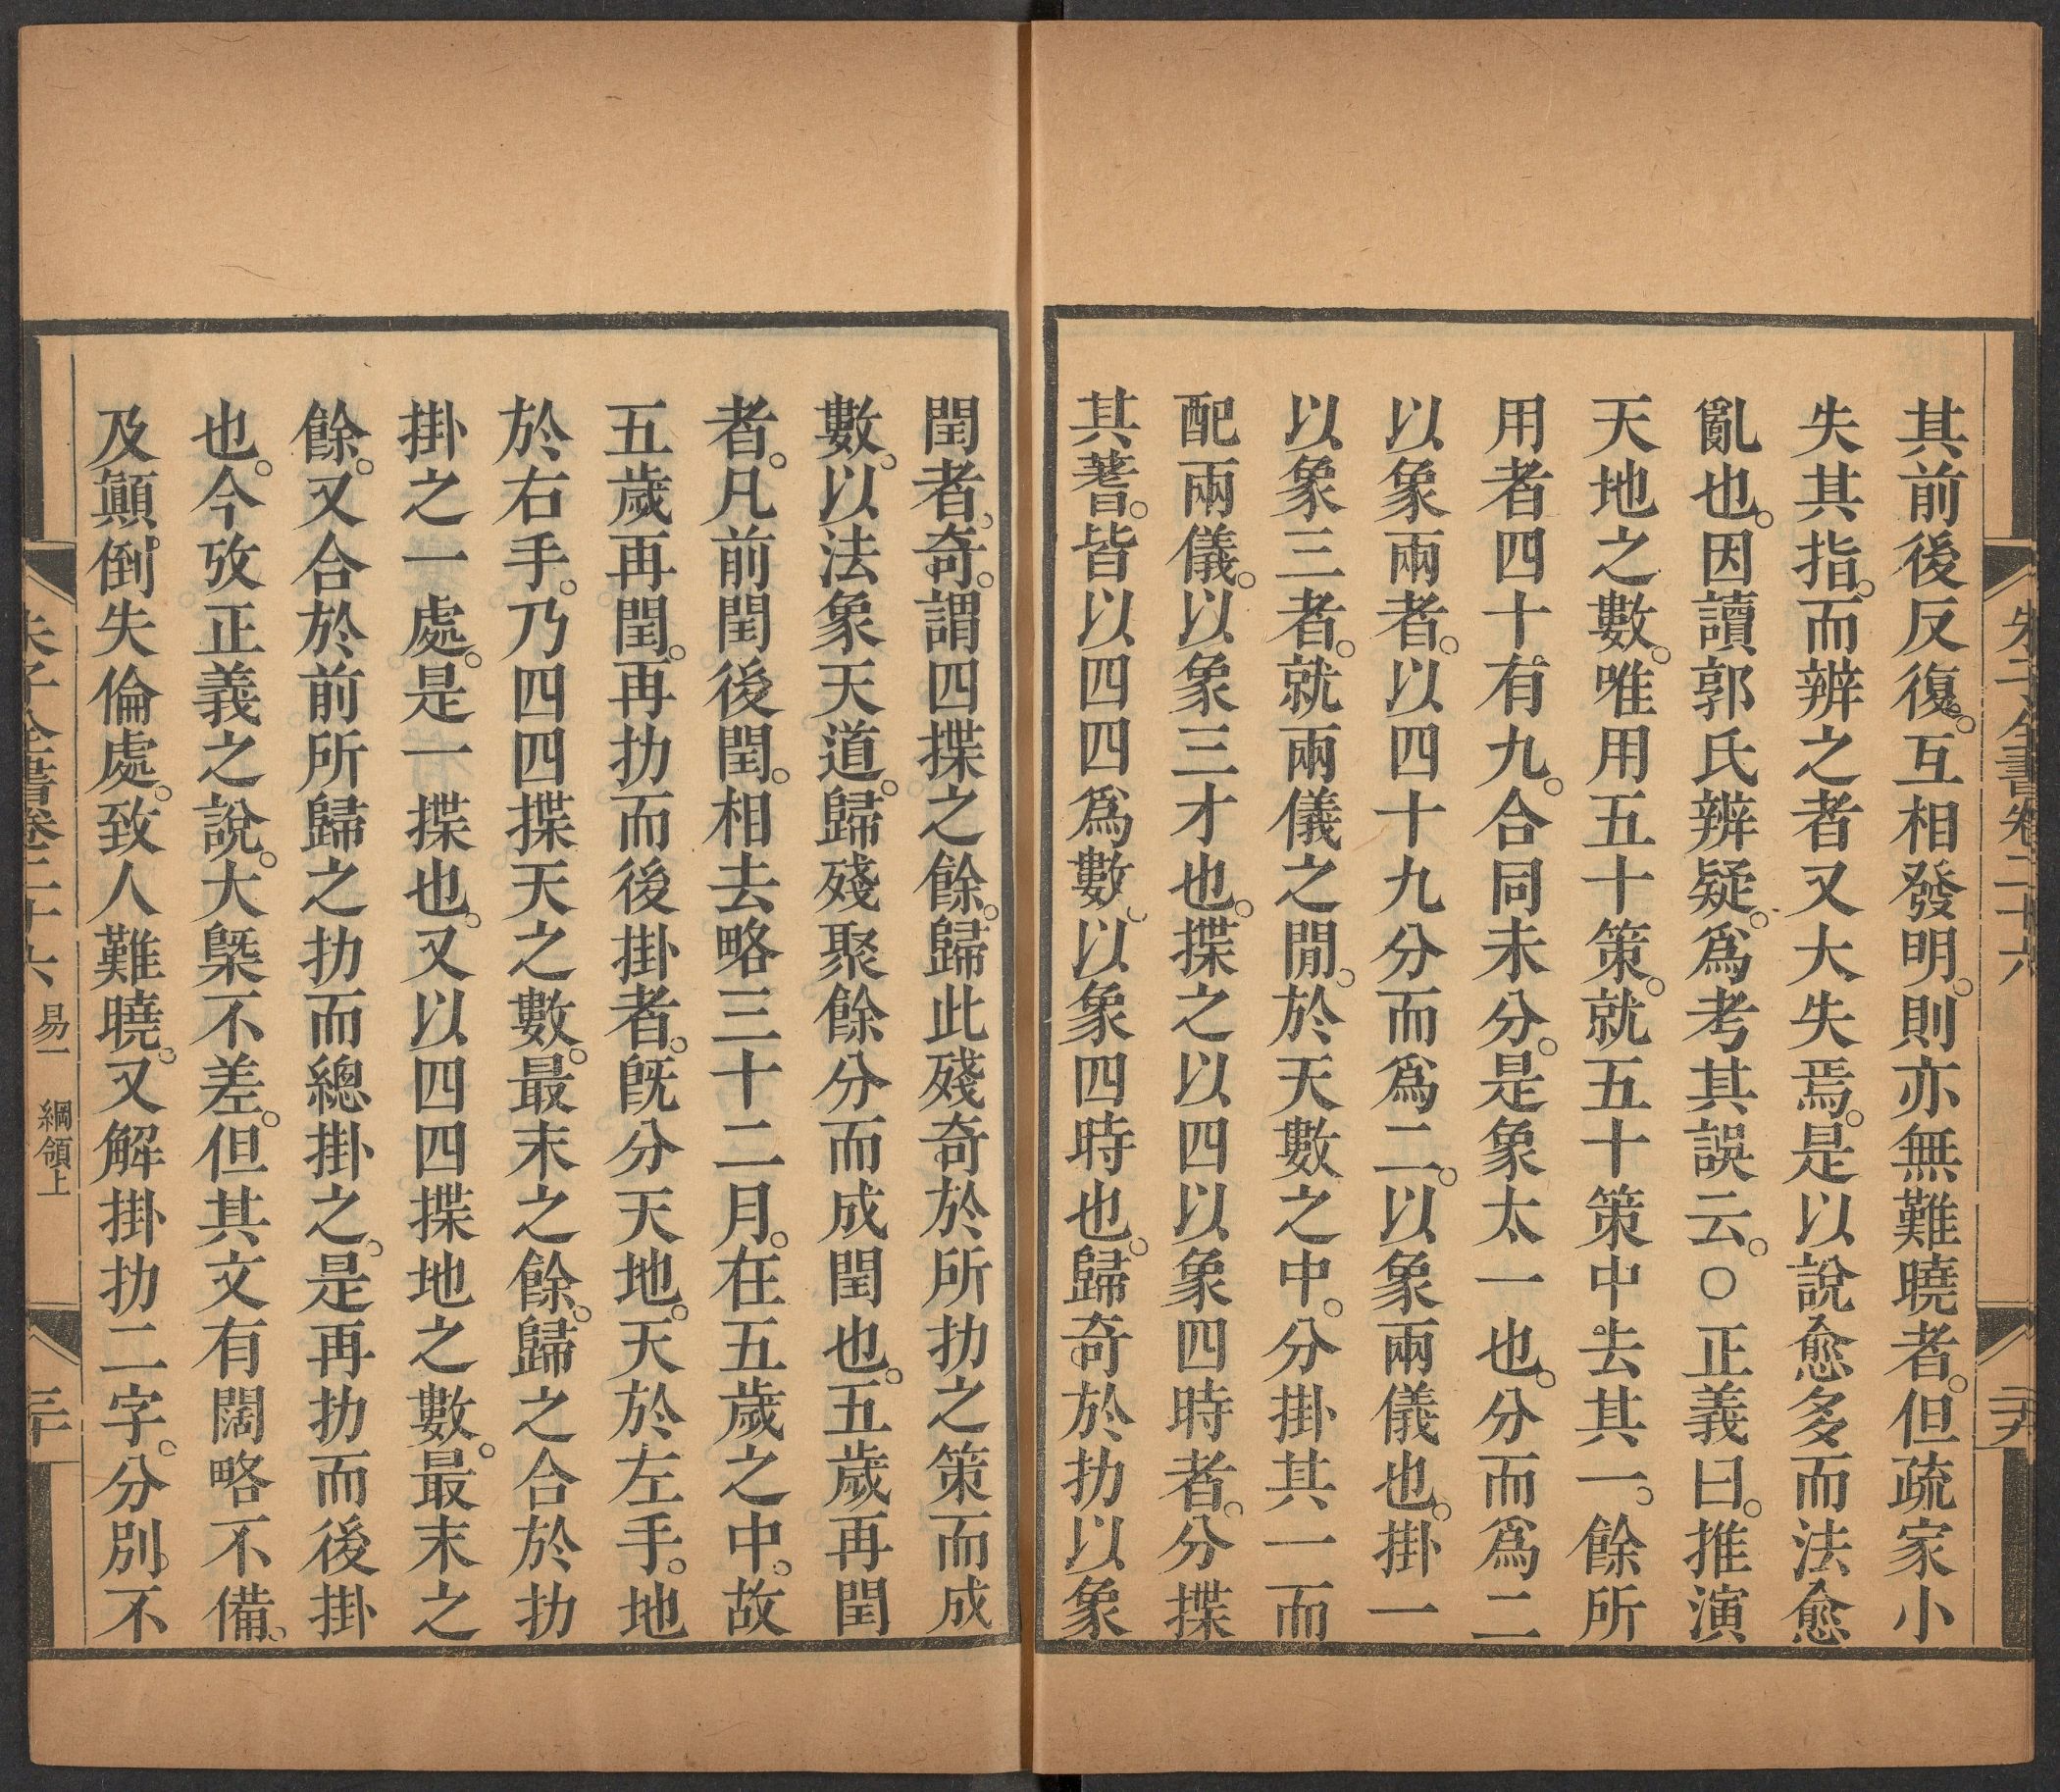 朱子全書卷二十六
二十九
其前後反復。互相發明。則亦無難曉者。但疏家小
失其指。而辨之者又大失焉。是以說愈多而法愈
亂也。因讀郭氏辨疑。爲考其誤云。○正義曰。推演
天地之數。唯用五十策。就五十策中去其一。餘所
用者四十有九。合同未分。是象太一也。分而爲二
以象兩者。以四十九分而爲二。以象兩儀也。掛一
以象三者。就兩儀之閒。於天數之中。分掛其一而
配兩儀。以象三才也。揲之以四以象四時者。分揲
其蓍。皆以四四爲數。以象四時也。歸奇於扐以象
閏者。奇。謂四揲之餘。歸此殘奇於所扐之策而成
數。以法象天道。歸殘聚餘分而成閏也。五歲再閏
者。凡前閏後閏。相去略三十二月。在五歲之中。故
五歲再閏。再扐而後掛者。旣分天地。天於左手。地
於右手。乃四四揲天之數。最末之餘。歸之合於扐
掛之一處。是一揲也。又以四四揲地之數。最末之
餘。又合於前所歸之扐而總掛之。是再扐而後掛
也。今攷正義之說。大槩不差。但其文有闊略不備。
及顚倒失倫處。致人難曉。又解掛扐二字。分別不
朱子全書卷二十六 易一 綱領上
三十